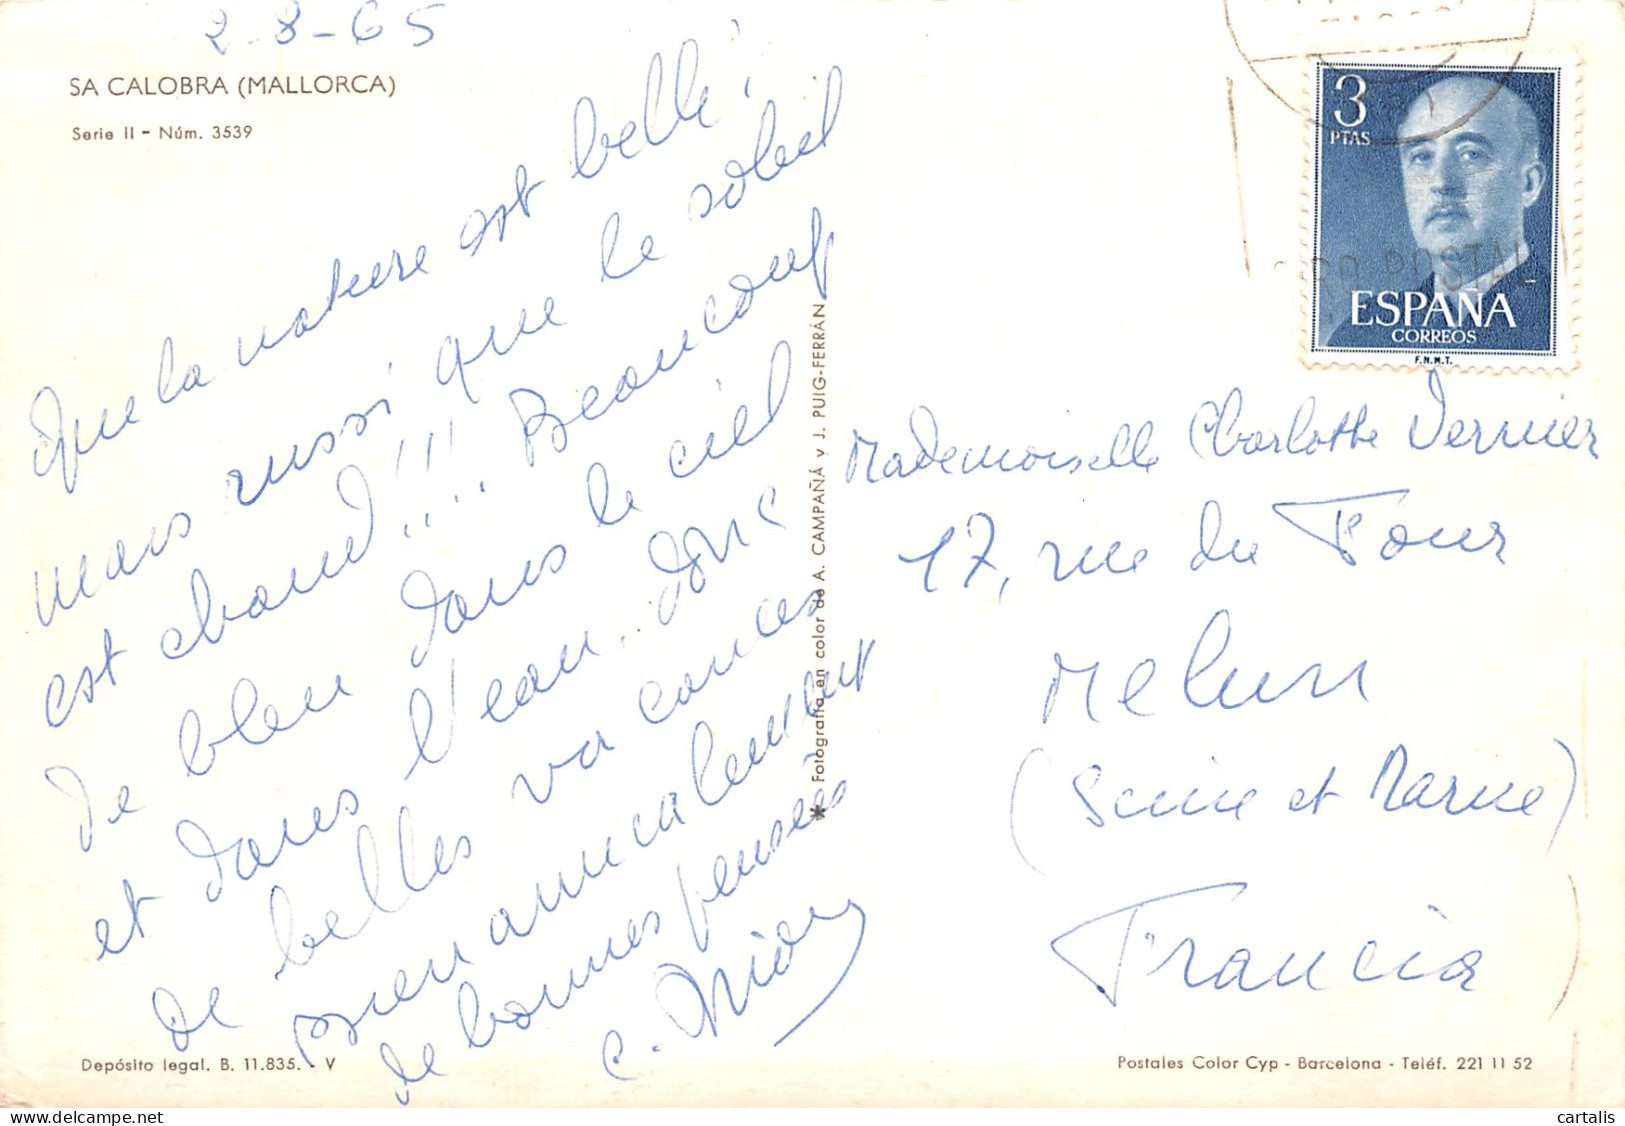 2-8-65
SA CALOBRA (MALLORCA)
Serie II - Núm. 3539
Que la nature est belle,
mais aussi que le soleil
est chaud!!!... Beaucoup
de bleu dans le ciel
et dans l'eau. donc
de belles vacances
Bien amicalement
de bonnes pensées
Fotografía en color de A. CAMPAÑÁ y J. PUIG-FERRÁN
3
PTAS
POSTAL
ESPAÑA
CORREOS
F.N.M.T.
Mademoiselle Charlotte Vernier
17, rue du Four
Melun
(Seine et Marne)
Francia
Depósito legal. B. 11.835. - V
Postales Color Cyp - Barcelona - Teléf. 221 11 52
cartalis